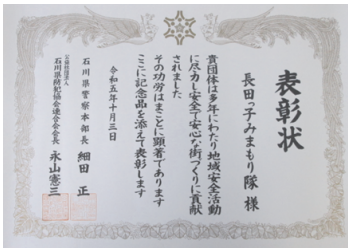 表彰状
長田っ子みまもり隊 様
貴団体は多年にわたり地域安全活動
に尽力し安全で安心な街づくりに貢献
されました
その功労はまことに顕著であります
ここに記念品を添えて表彰します
令和五年十月三日
石川県警察本部長 細田 正
公益社団法人
石川県防犯協会連合会会長 永山憲三